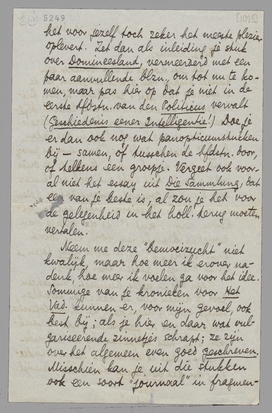 5249
het voor jezelf toch zeker het meeste plezier
oplevert. Zet dan als inleiding je stuk
over Domineesland, vermeerderd met een
paar aanvullende blzn, om tot nu te ko-
men, maar pas hier op dat je niet in de
eerste hfdstn. van den Politicus vervalt
(Geschiedenis eener Intelligentie!) Doe je
er dan ook nog wat panopticumstukken
bij — samen, of tusschen de hfdstn. door,
of telkens een groepje. Vergeet ook voor-
al niet het essay uit Die Sammlung, dat
een van je beste is, al zou je het voor
de gelegenheid in het holl. terug moeten
vertalen.
Neem me deze "bemoeizucht" niet
kwalijk, maar hoe meer ik erover na-
denk, hoe meer ik voelen ga voor het idee.
Sommige van je kronieken voor Het
Vad. kunnen er, voor mijn gevoel, ook
best bij; als je hier en daar wat vul-
gariseerende zinnetjes schrapt; ze zijn
over het algemeen even goed geschreven.
Misschien kan je uit die stukken
ook een soort "journaal" in fragmen-